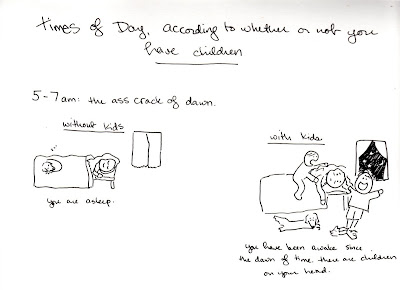 Times of Day, according to whether or not you
have children
5-7am: the ass crack of dawn.
without kids
with kids
you are asleep.
you have been awake since
the dawn of time. there are children
on your head.